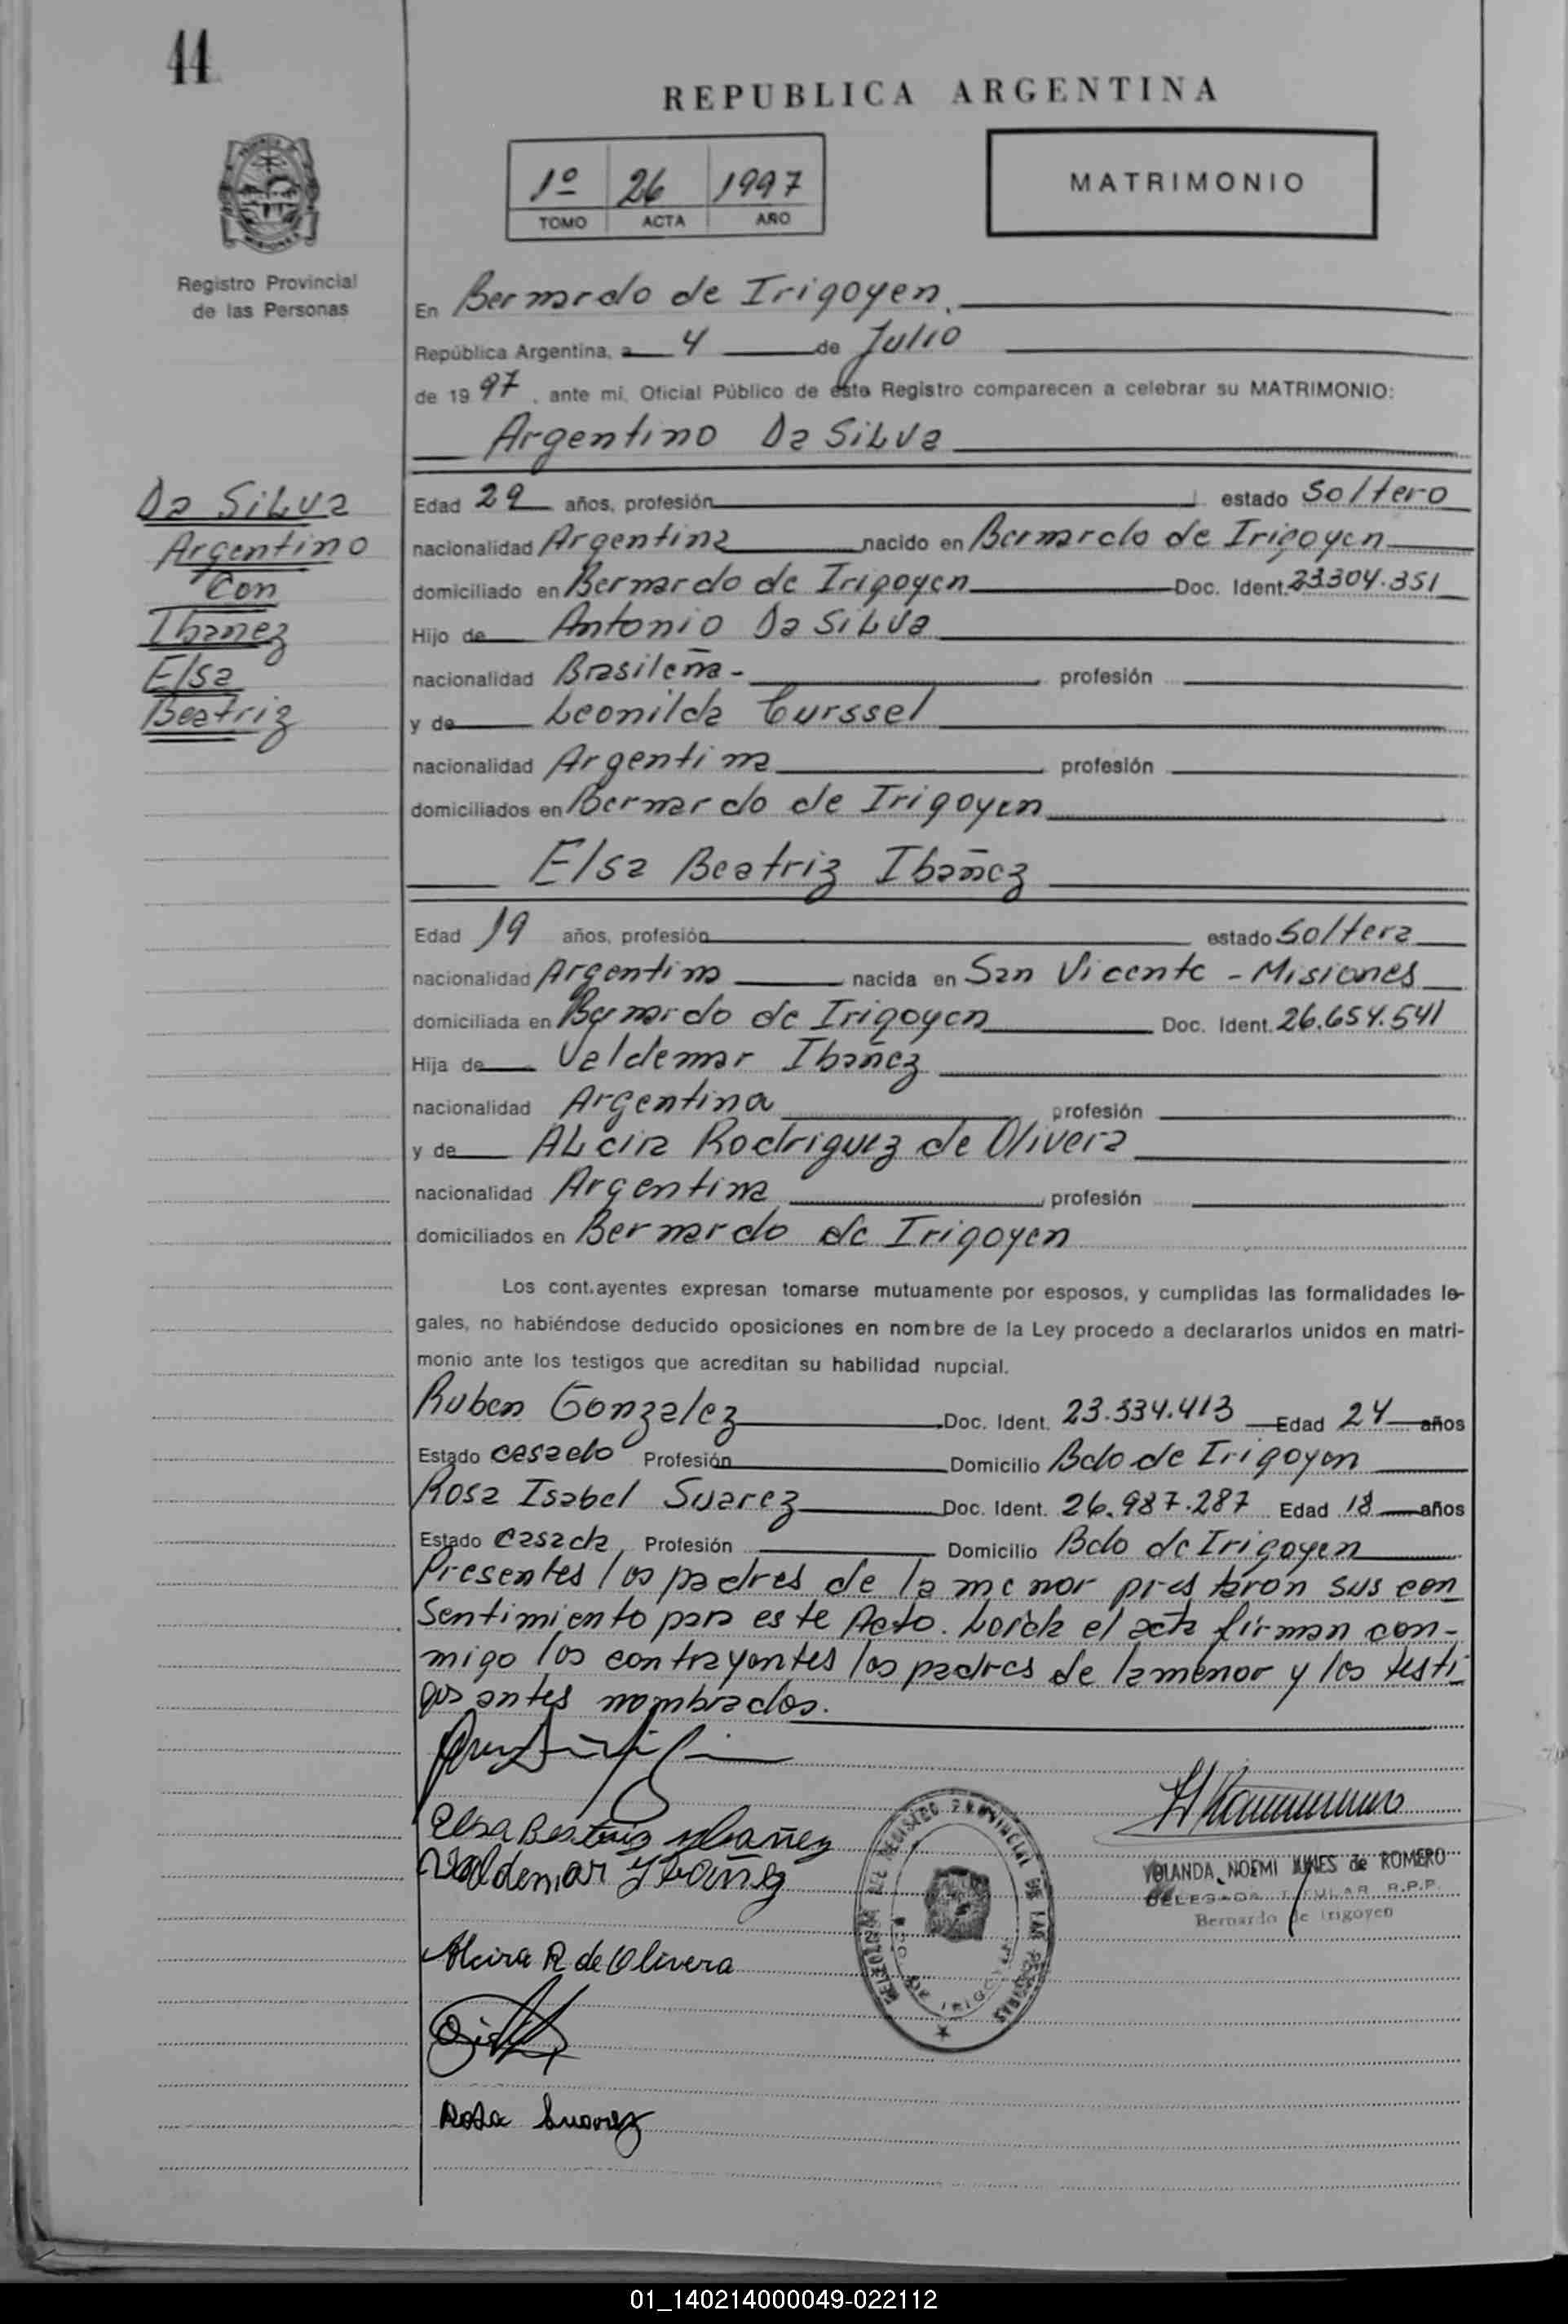 44
REPUBLICA ARGENTINA
1º 26 1997
TOMO ACTA AÑO
MATRIMONIO
Registro Provincial
de las Personas
En Bernardo de Irigoyen.
República Argentina, a 4 de Julio
de 1997, ante mi, Oficial Público de este Registro comparecen a celebrar su MATRIMONIO:
Argentino Da Silva
Da Silva
Argentino
Con
Ibanez
Elsa
Beatriz
Edad 29 años, profesión estado Soltero
nacionalidad Argentina nacido en Bernardo de Irigoyen
domiciliado en Bernardo de Irigoyen Doc. Ident. 23.304.351
Hijo de Antonio Da Silva
nacionalidad Brasileña - profesión
y de Leonilda Curssel
nacionalidad Argentina profesión
domiciliados en Bernardo de Irigoyen
Elsa Beatriz Ibañez
Edad 19 años, profesión estado Soltera
nacionalidad Argentina nacida en San Vicente - Misiones
domiciliada en Bernardo de Irigoyen Doc. Ident. 26.654.541
Hija de Valdemar Ibañez
nacionalidad Argentina profesión
y de Alcira Rodriguez de Olivera
nacionalidad Argentina profesión
domiciliados en Bernardo de Irigoyen
Los cont.ayentes expresan tomarse mutuamente por esposos, y cumplidas las formalidades le-
gales, no habiéndose deducido oposiciones en nombre de la Ley procedo a declararlos unidos en matri-
monio ante los testigos que acreditan su habilidad nupcial.
Ruben Gonzalez Doc. Ident. 23.334.413 Edad 24 años
Estado casado Profesión Domicilio Bdo de Irigoyen
Rosa Isabel Suarez Doc. Ident. 26.987.287 Edad 18 años
Estado casada Profesión Domicilio Bdo de Irigoyen
Presentes los padres de la menor prestaron sus con
sentimiento para este Acto. Leida el acta firman con-
migo los contrayentes los padres de la menor y los testi
gos antes nombrados.
Elsa Beatriz Ybañez
Valdemar Ybañez
YOLANDA NOEMI NUNES de ROMERO
DELEGADA TITULAR R.P.P.
Bernardo de Irigoyen
DELEGACION DEL REGISTRO PROVINCIAL DE LAS PERSONAS
BDO DE IRIGOYEN
Alcira R. de Olivera
Rosa Suarez
01_140214000049-022112